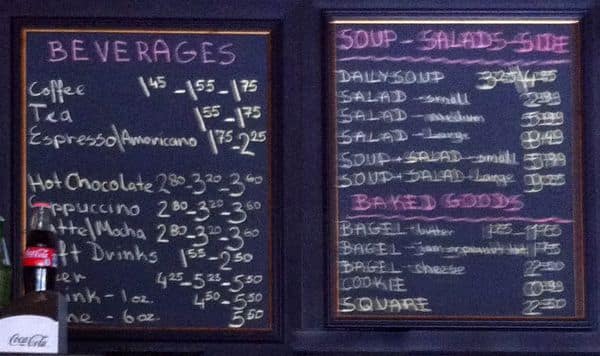 BEVERAGES
Coffee 1.45 - 1.55 - 1.75
Tea 1.55 - 1.75
Espresso/Americano 1.75 - 2.25
Hot Chocolate 2.80 - 3.20 - 3.60
ppuccino 2.80 - 3.20 - 3.60
tte/Mocha 2.80 - 3.20 - 3.60
ft Drinks 1.55 - 2.50
er 4.25 - 5.25 - 5.50
ink - 1 oz. 4.50 - 5.50
ne - 6 oz. 5.50
Coca-Cola
Coca-Cola
SOUP - SALADS - SIDE
DAILY SOUP
SALAD - small 2.99
SALAD - medium 5.99
SALAD - Large 8.49
SOUP + SALAD - small 5.99
SOUP + SALAD - Large
BAKED GOODS
BAGEL - butter
BAGEL - 1.75
BAGEL - cheese 2.50
COOKIE 0.99
SQUARE 2.50